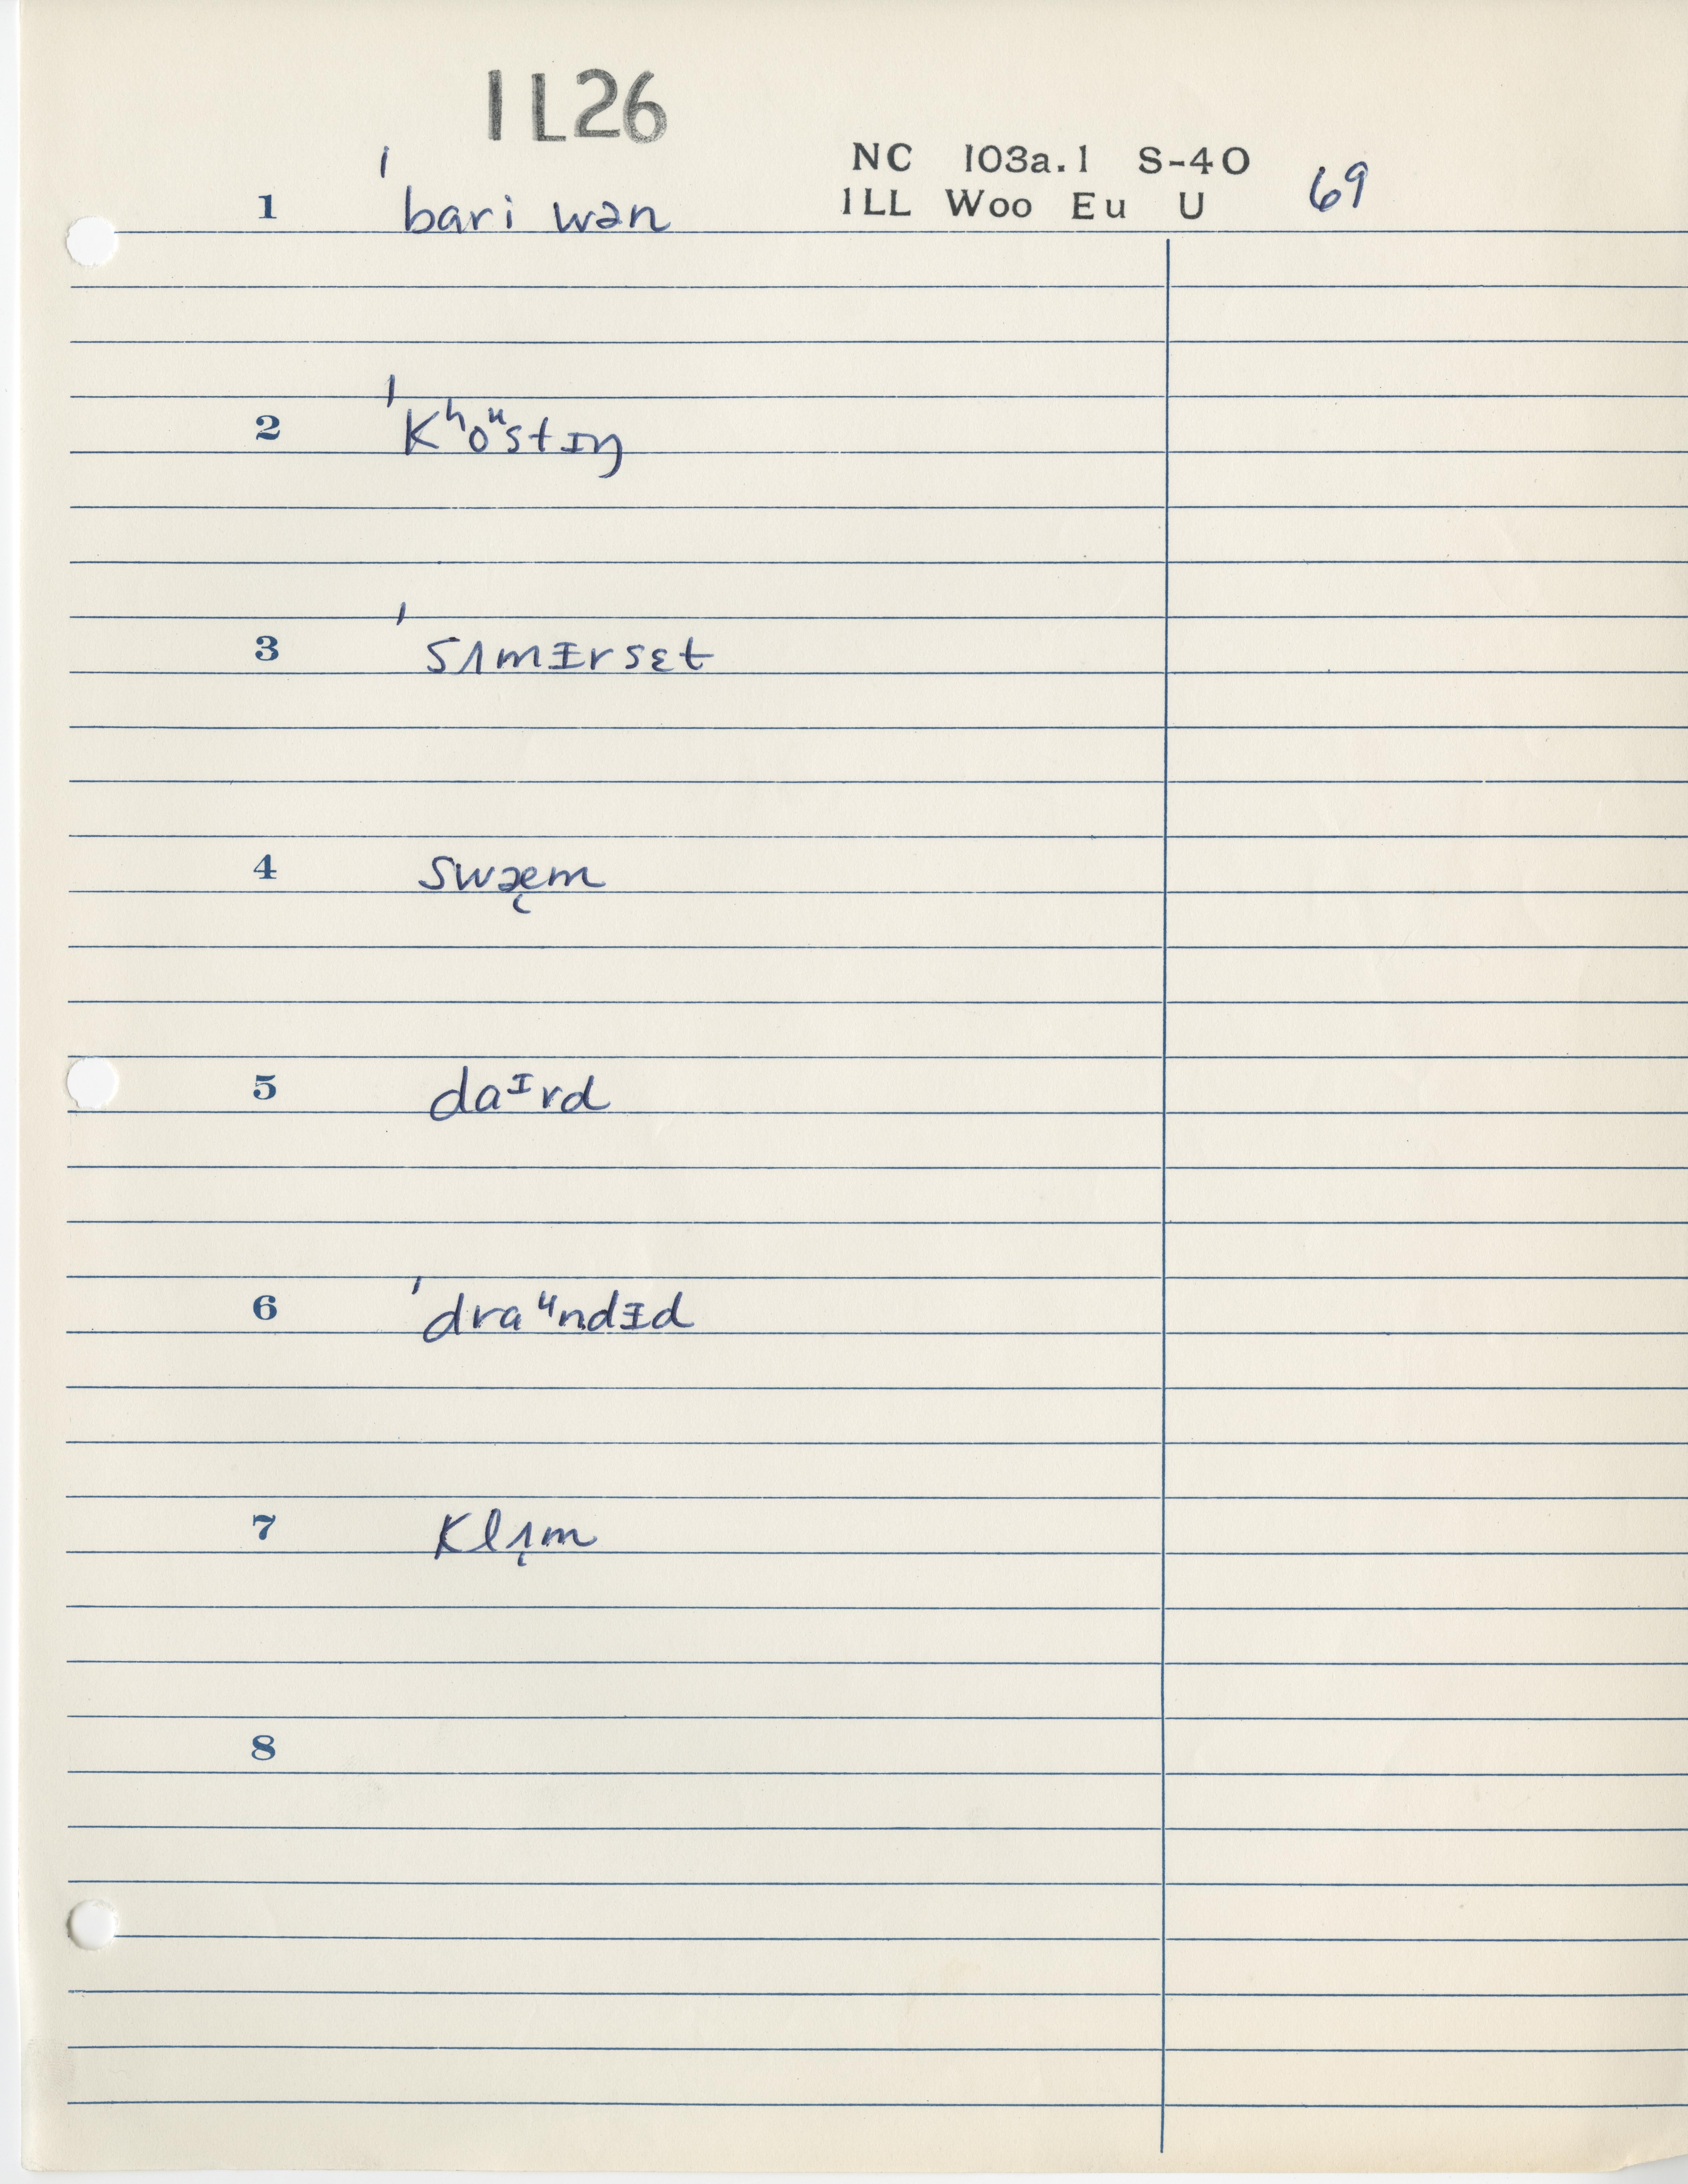 1L26
NC 103a.1 S-40
1LL Woo Eu U 69
1 ˈbari wən
2 ˈKʰoᵘstɪŋ
3 ˈsʌmɪrsɛt
4 swæ̜m
5 daᶦrd
6 ˈdraᶸndɪd
7 Klʌ̜m
8